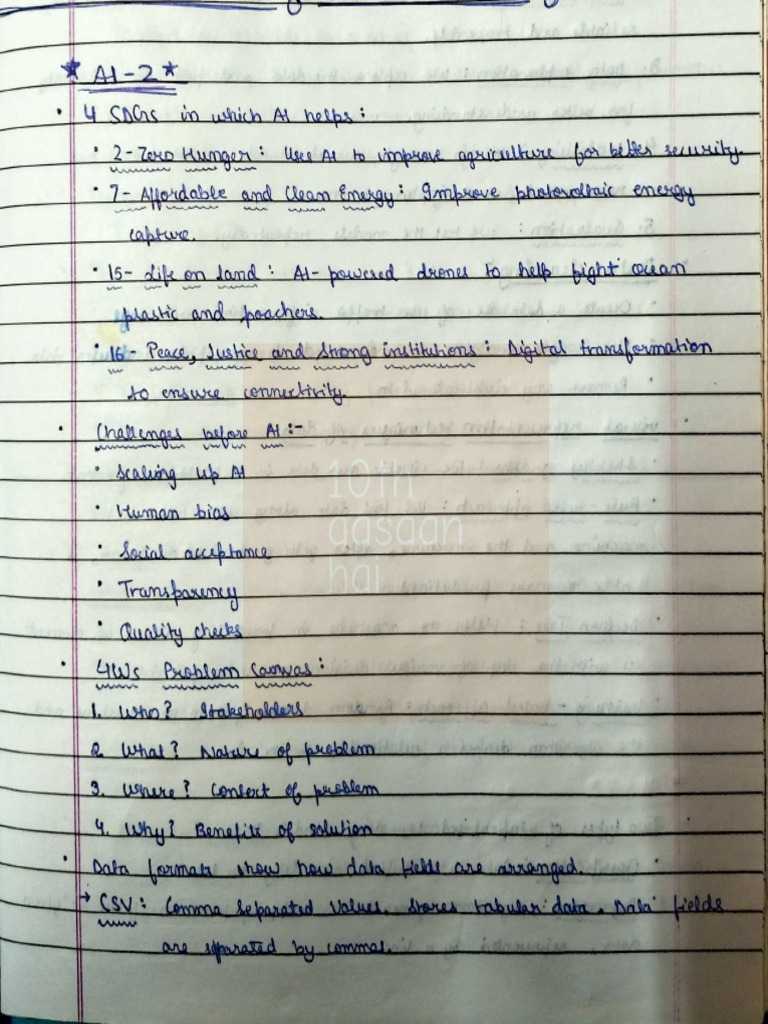 ★ AI-2 ★
• 4 SDGs in which AI helps:
• 2-Zero Hunger: Uses AI to improve agriculture for better security.
• 7-Affordable and Clean Energy: Improve photovoltaic energy
capture.
• 15- Life on land: AI-powered drones to help fight ocean
plastic and poachers.
• 16- Peace, Justice and Strong institutions: Digital transformation
to ensure connectivity.
• Challenges before AI:-
• Scaling up AI
• Human bias
• Social acceptance
• Transparency
• Quality checks
10th
aasaan
hai
• 4Ws Problem Canvas:
1. Who? Stakeholders
2. What? Nature of problem
3. Where? Context of problem
4. Why? Benefits of solution
• Data formats show how data fields are arranged.
→ CSV: Comma Separated Values. Stores tabular data. Data fields
are separated by commas.